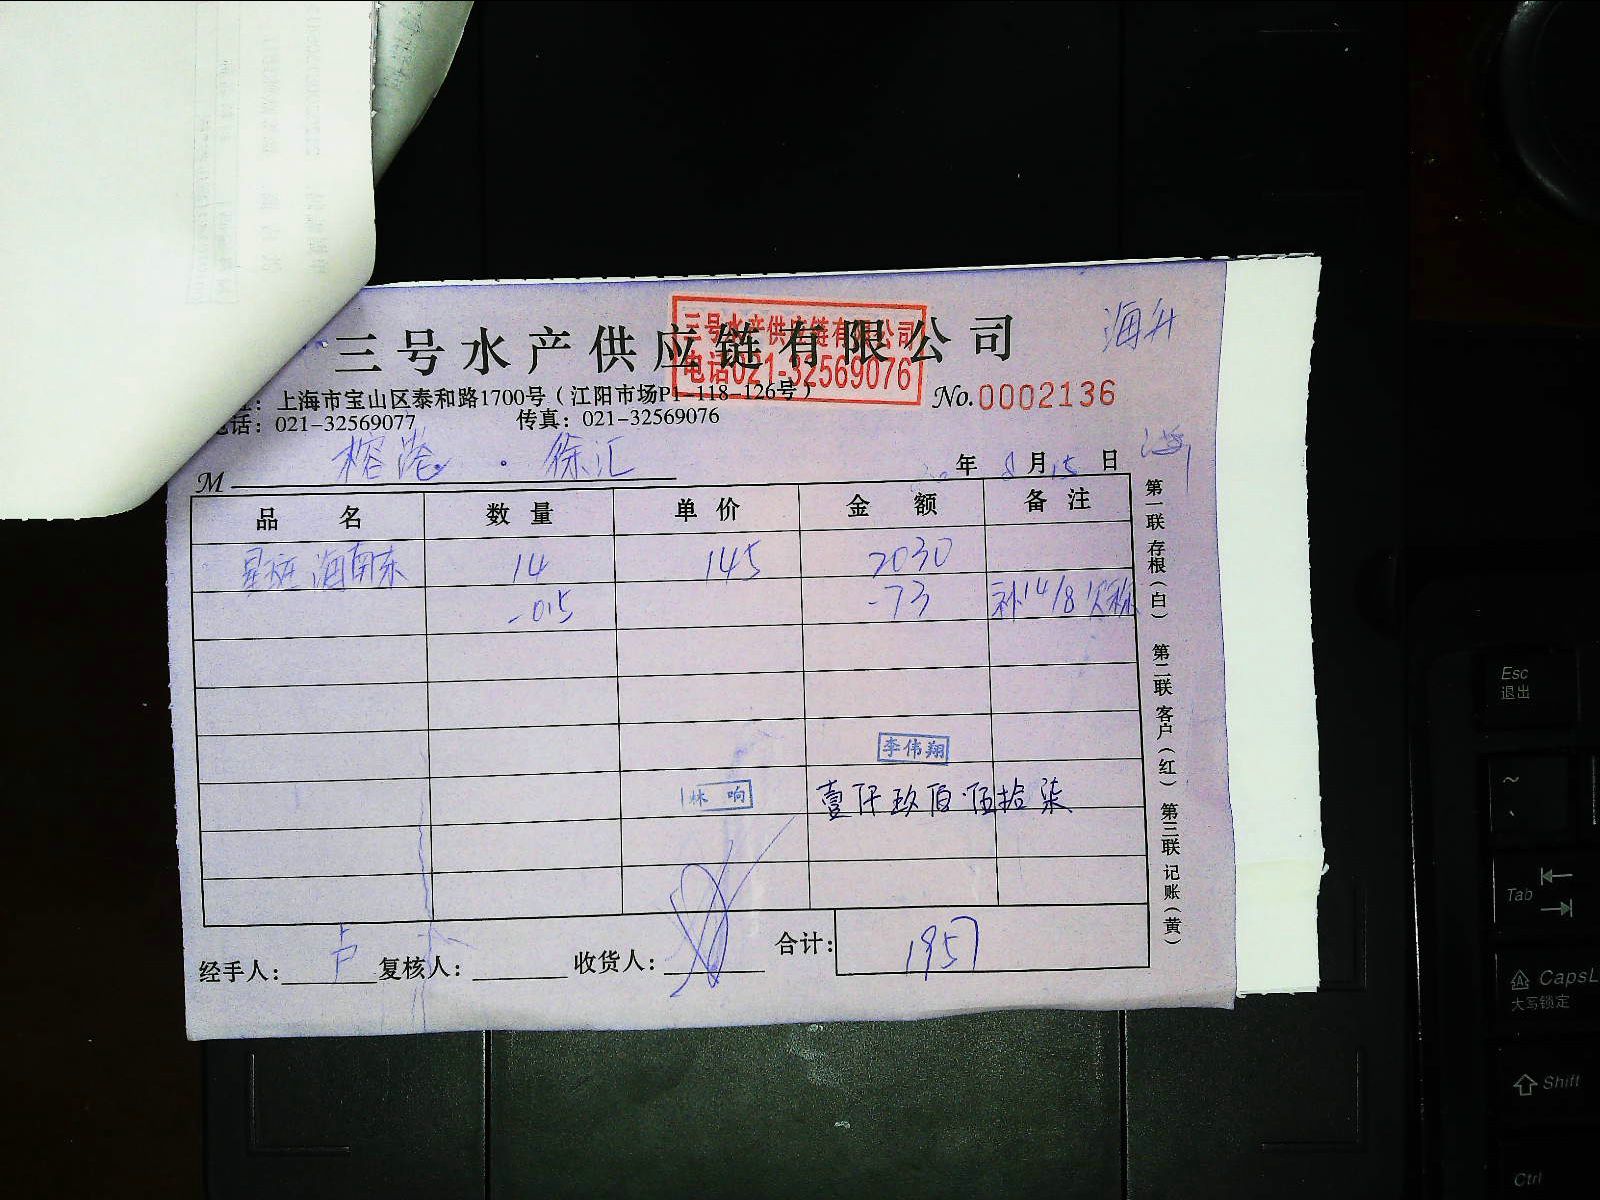 海升
三号水产供应链有限公司
三号水产供应链有限公司
电话021-32569076
：上海市宝山区泰和路1700号（江阳市场P1-118-126号）
No.0002136
电话：021-32569077 传真：021-32569076
M 榕港 · 徐汇 年 8月15日
品名 数量 单价 金额 备注
星斑 海南东 14 145 2030
-0.5 -73 补14/8欠称
李伟翔
林响
壹仟玖佰伍拾柒
经手人：卢 复核人： 收货人： 合计：1957
第一联 存根（白） 第二联 客户（红） 第三联 记账（黄）
Esc
退出
~
Tab
CapsL
大写锁定
Shift
Ctrl